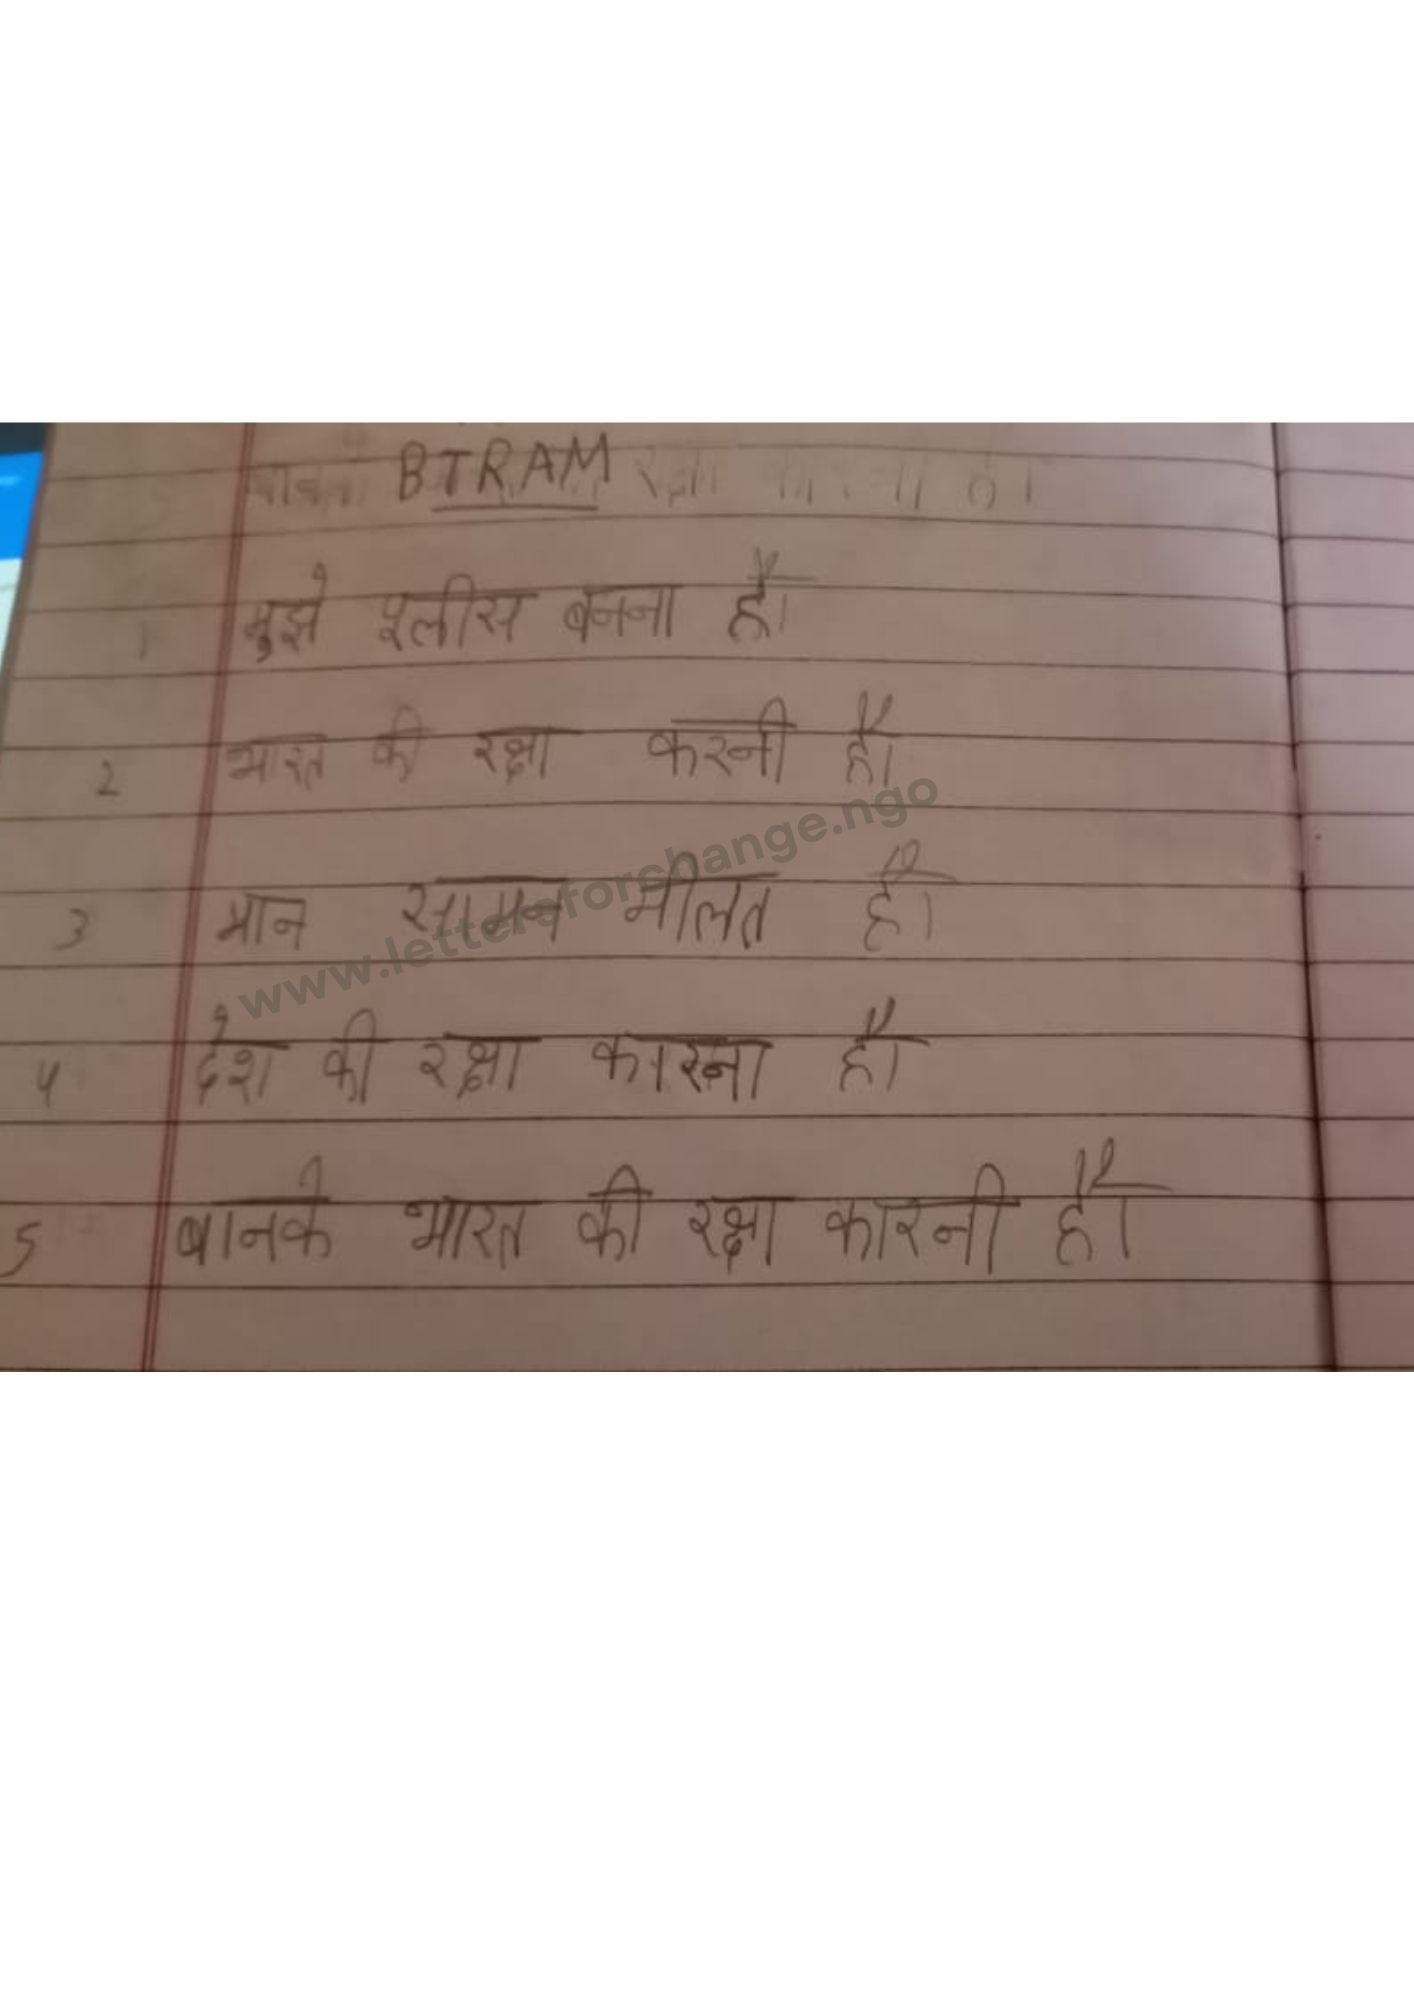 BTRAM
1 मुझे प्लीस बनना है।
2 भारत की रक्षा करनी है।
3 मान सामन मीलत है।
4 देश की रक्षा कारना है।
5 बानके भारत की रक्षा कारनी है।
www.lettersforchange.ngo